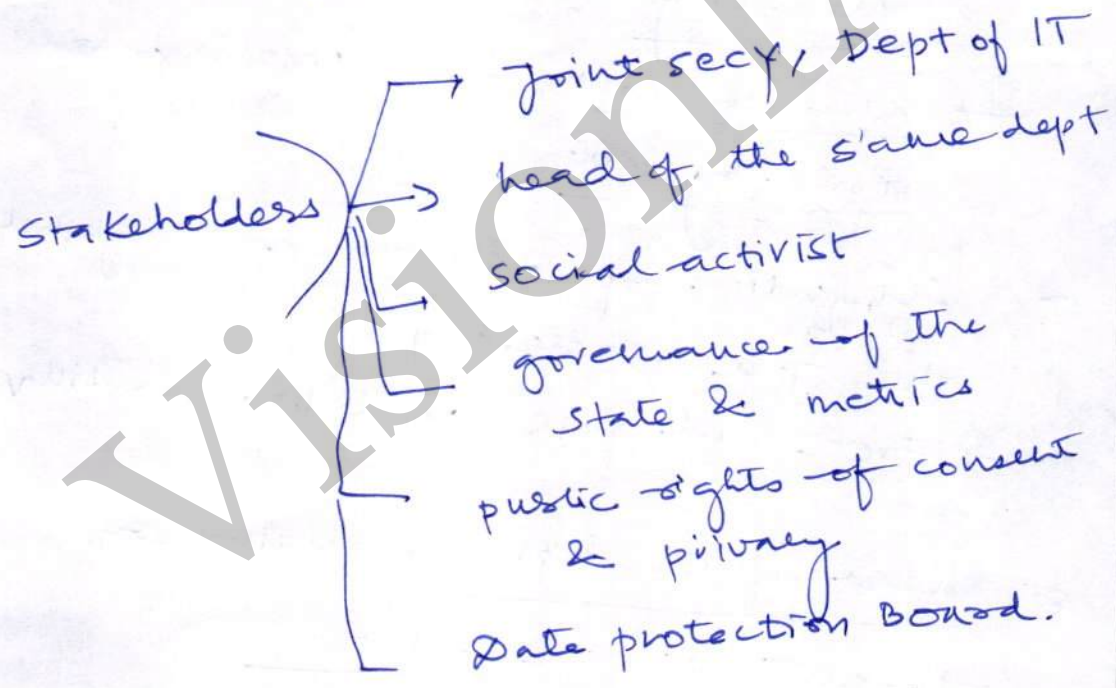 Joint secy, Dept of IT
head of the same dept
Stakeholders
social activist
governance of the
State & metrics
public rights of consent
& privacy
Data protection Board.
Vision